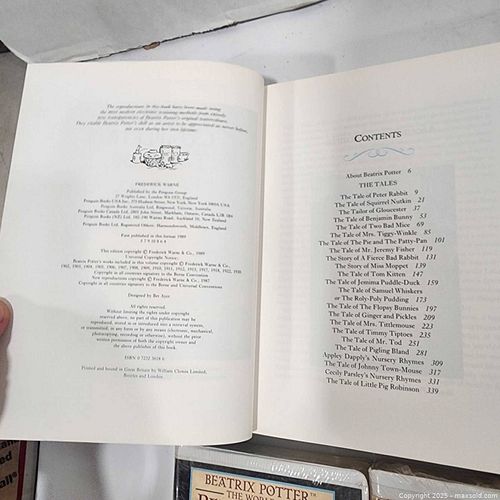 The reproductions in this book have been made using
the most modern electronic scanning methods from entirely
new transparencies of Beatrix Potter's original watercolours.
They enable Beatrix Potter's skill as an artist to be appreciated as never before,
not even during her own lifetime.
FREDERICK WARNE
Published by the Penguin Group
27 Wrights Lane, London W8 5TZ, England
Penguin Books USA Inc., 375 Hudson Street, New York, New York 10014, USA
Penguin Books Australia Ltd, Ringwood, Victoria, Australia
Penguin Books Canada Ltd, 2801 John Street, Markham, Ontario, Canada L3R 1B4
Penguin Books (NZ) Ltd, 182-190 Wairau Road, Auckland 10, New Zealand
Penguin Books Ltd, Registered Offices: Harmondsworth, Middlesex, England
First published in this format 1989
This edition copyright © Frederick Warne & Co., 1989
Universal Copyright Notice:
Beatrix Potter's works included in this volume copyright © Frederick Warne & Co.
1902, 1903, 1904, 1905, 1906, 1907, 1908, 1909, 1910, 1911, 1912, 1913, 1917, 1918, 1922, 1930
Copyright in all countries signatory to the Berne Convention
New reproductions copyright © Frederick Warne & Co., 1987
Copyright in all countries signatory to the Berne and Universal Conventions
Designed by Bet Ayer
All rights reserved.
Without limiting the rights under copyright
reserved above, no part of this publication may be
reproduced, stored in or introduced into a retrieval system,
or transmitted, in any form or by any means (electronic, mechanical,
photocopying, recording or otherwise), without the prior
written permission of both the copyright owner and
the above publisher of this book.
ISBN 0 7232 3618
Printed and bound in Great Britain by William Clowes Limited,
Beccles and London
CONTENTS
About Beatrix Potter 6
THE TALES
The Tale of Peter Rabbit 9
The Tale of Squirrel Nutkin 21
The Tailor of Gloucester 37
The Tale of Benjamin Bunny 53
The Tale of Two Bad Mice 69
The Tale of Mrs. Tiggy-Winkle 85
The Tale of The Pie and The Patty-Pan 101
The Tale of Mr. Jeremy Fisher 119
The Story of A Fierce Bad Rabbit 131
The Story of Miss Moppet 139
The Tale of Tom Kitten 147
The Tale of Jemima Puddle-Duck 159
The Tale of Samuel Whiskers
or The Roly-Poly Pudding 173
The Tale of The Flopsy Bunnies 197
The Tale of Ginger and Pickles 209
The Tale of Mrs. Tittlemouse 223
The Tale of Timmy Tiptoes 235
The Tale of Mr. Tod 251
The Tale of Pigling Bland 281
Appley Dapply's Nursery Rhymes 309
The Tale of Johnny Town-Mouse 317
Cecily Parsley's Nursery Rhymes 331
The Tale of Little Pig Robinson 339
BEATRIX POTTER™
Copyright 2025 - maxsold.com